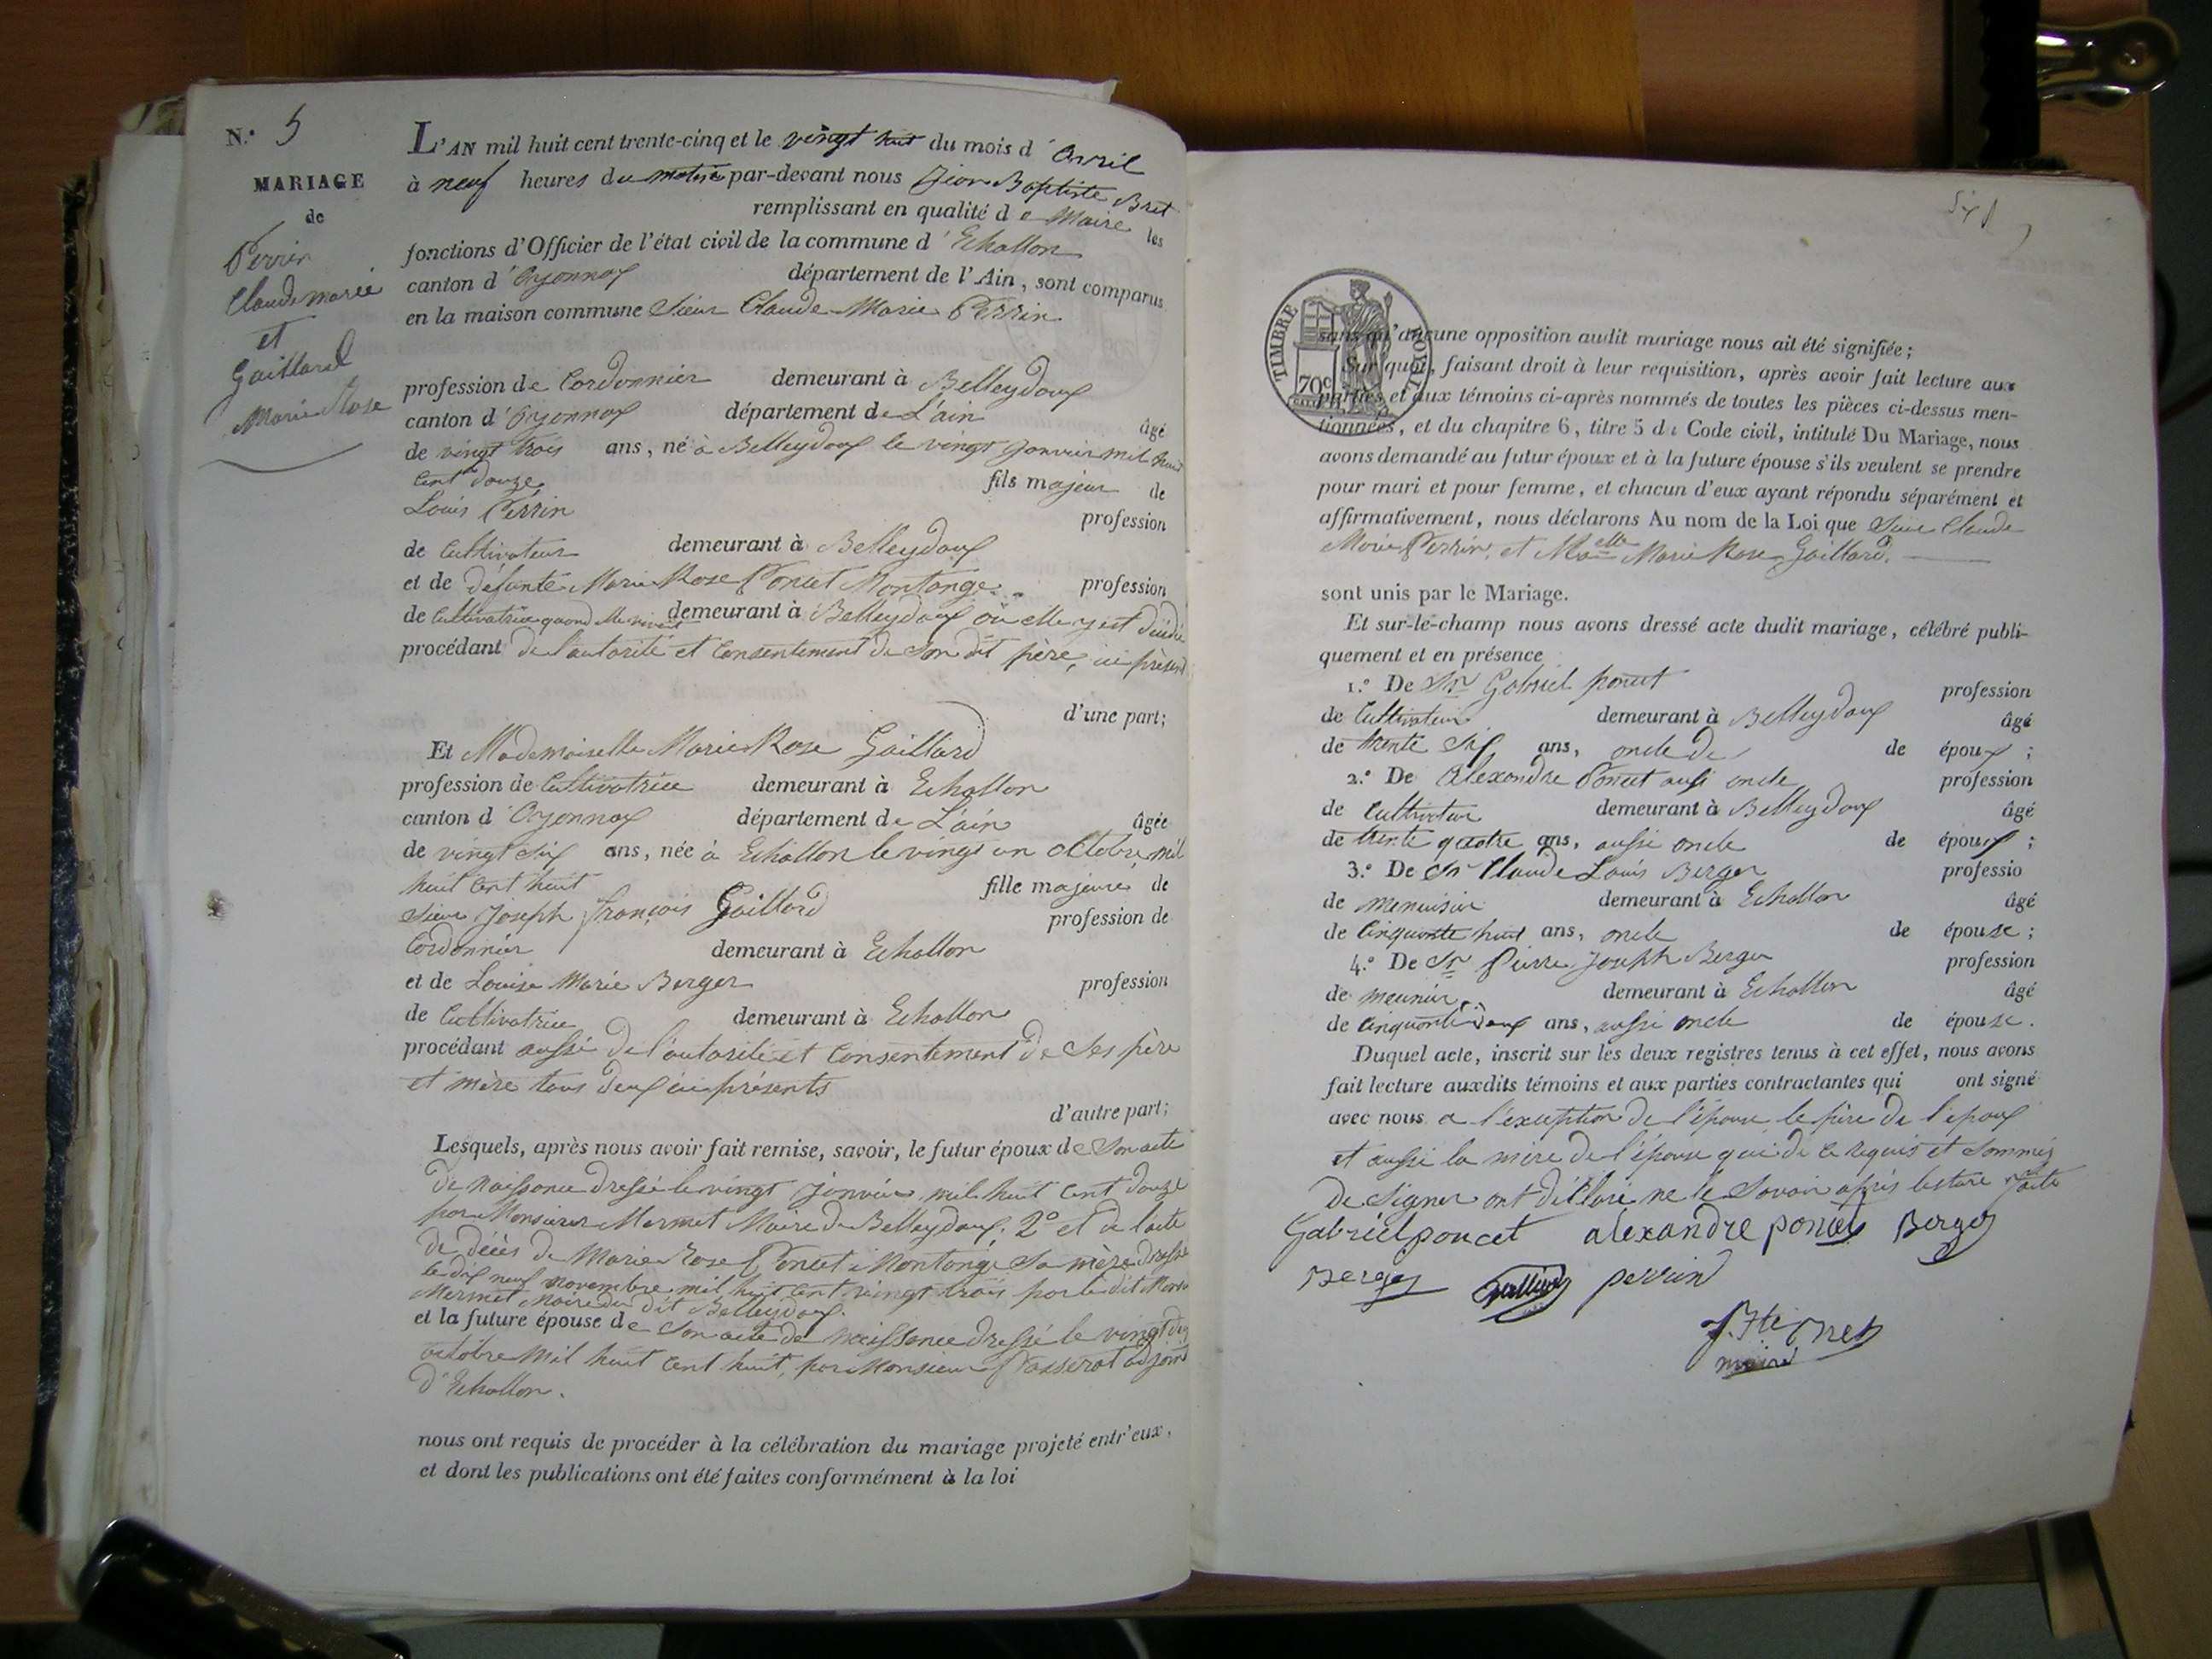 N.° 5
MARIAGE
de
Perrin
Claude marie
et
Gaillard
Marie Rose
L'AN mil huit cent trente-cinq et le vingt huit du mois d'Avril
à neuf heures du matin par-devant nous Jean Baptiste Bret
remplissant en qualité de Maire les
fonctions d'Officier de l'état civil de la commune d'Echallon
canton d'Oyonnax département de l'Ain, sont comparus
en la maison commune Sieur Claude Marie Perrin
profession de Cordonnier demeurant à Belleydoux
canton d'Oyonnax département de L'ain âgé
de vingt trois ans, né à Belleydoux le vingt janvier mil huit
cent douze fils majeur de
Louis Perrin profession
de Cultivateur demeurant à Belleydoux
et de défunte Marie Rose Poncet Montange profession
de Cultivatrice quand elle vivait demeurant à Belleydoux où elle y est décédée
procédant de l'autorité et consentement de son dit père, ici présent
d'une part;
Et Mademoiselle Marie Rose Gaillard
profession de Cultivatrice demeurant à Echallon
canton d'Oyonnax département de L'ain âgée
de vingt six ans, née à Echallon le vingt un octobre mil
huit cent huit fille majeure de
Sieur Joseph françois Gaillard profession de
Cordonnier demeurant à Echallon
et de Louise Marie Berger profession
de Cultivatrice demeurant à Echallon
procédant aussi de l'autorité et consentement de ses père
et mère tous deux ici présents
d'autre part;
Lesquels, après nous avoir fait remise, savoir, le futur époux de son acte
de naissance dressé le vingt janvier mil huit cent douze
par Monsieur Mermet Maire de Belleydoux; 2° et de l'acte
de décès de Marie Rose Poncet Montange sa mère dressé
le dix neuf novembre mil huit cent vingt trois par le dit
Mermet Maire du dit Belleydoux.
et la future épouse de son acte de naissance dressé le vingt
octobre mil huit cent huit, par Monsieur Passerat adjoint
d'Echallon.
nous ont requis de procéder à la célébration du mariage projeté entr'eux,
et dont les publications ont été faites conformément à la loi
TIMBRE ROYAL
70c
sans qu'aucune opposition audit mariage nous ait été signifiée;
Sur quoi, faisant droit à leur requisition, après avoir fait lecture aux
parties et aux témoins ci-après nommés de toutes les pièces ci-dessus men-
tionnées, et du chapitre 6, titre 5 du Code civil, intitulé Du Mariage, nous
avons demandé au futur époux et à la future épouse s'ils veulent se prendre
pour mari et pour femme, et chacun d'eux ayant répondu séparément et
affirmativement, nous déclarons Au nom de la Loi que Sieur Claude
Marie Perrin, et Melle Marie Rose Gaillard.
sont unis par le Mariage.
Et sur-le-champ nous avons dressé acte dudit mariage, célébré publi-
quement et en présence
1.° De Sr Gabriel poncet profession
de Cultivateur demeurant à Belleydoux âgé
de trente six ans, oncle de de époux;
2.° De Alexandre Poncet aussi oncle profession
de Cultivateur demeurant à Belleydoux âgé
de trente quatre ans, aussi oncle de époux;
3.° De Sr Claude Louis Berger professio
de menuisier demeurant à Echallon âgé
de Cinquante huit ans, oncle de épouse;
4.° De Sr Pierre Joseph Berger profession
de meunier demeurant à Echallon âgé
de Cinquante deux ans, aussi oncle de épouse.
Duquel acte, inscrit sur les deux registres tenus à cet effet, nous avons
fait lecture auxdits témoins et aux parties contractantes qui ont signé
avec nous a l'exception de l'épouse le père de l'epoux
et aussi la mère de l'épouse qui de ce requis et sommés
de signer ont déclaré ne le savoir après lecture faite
Gabriel poncet alexandre poncet Berger
Berger Gaillard perrin
J. Bte Bret
maire